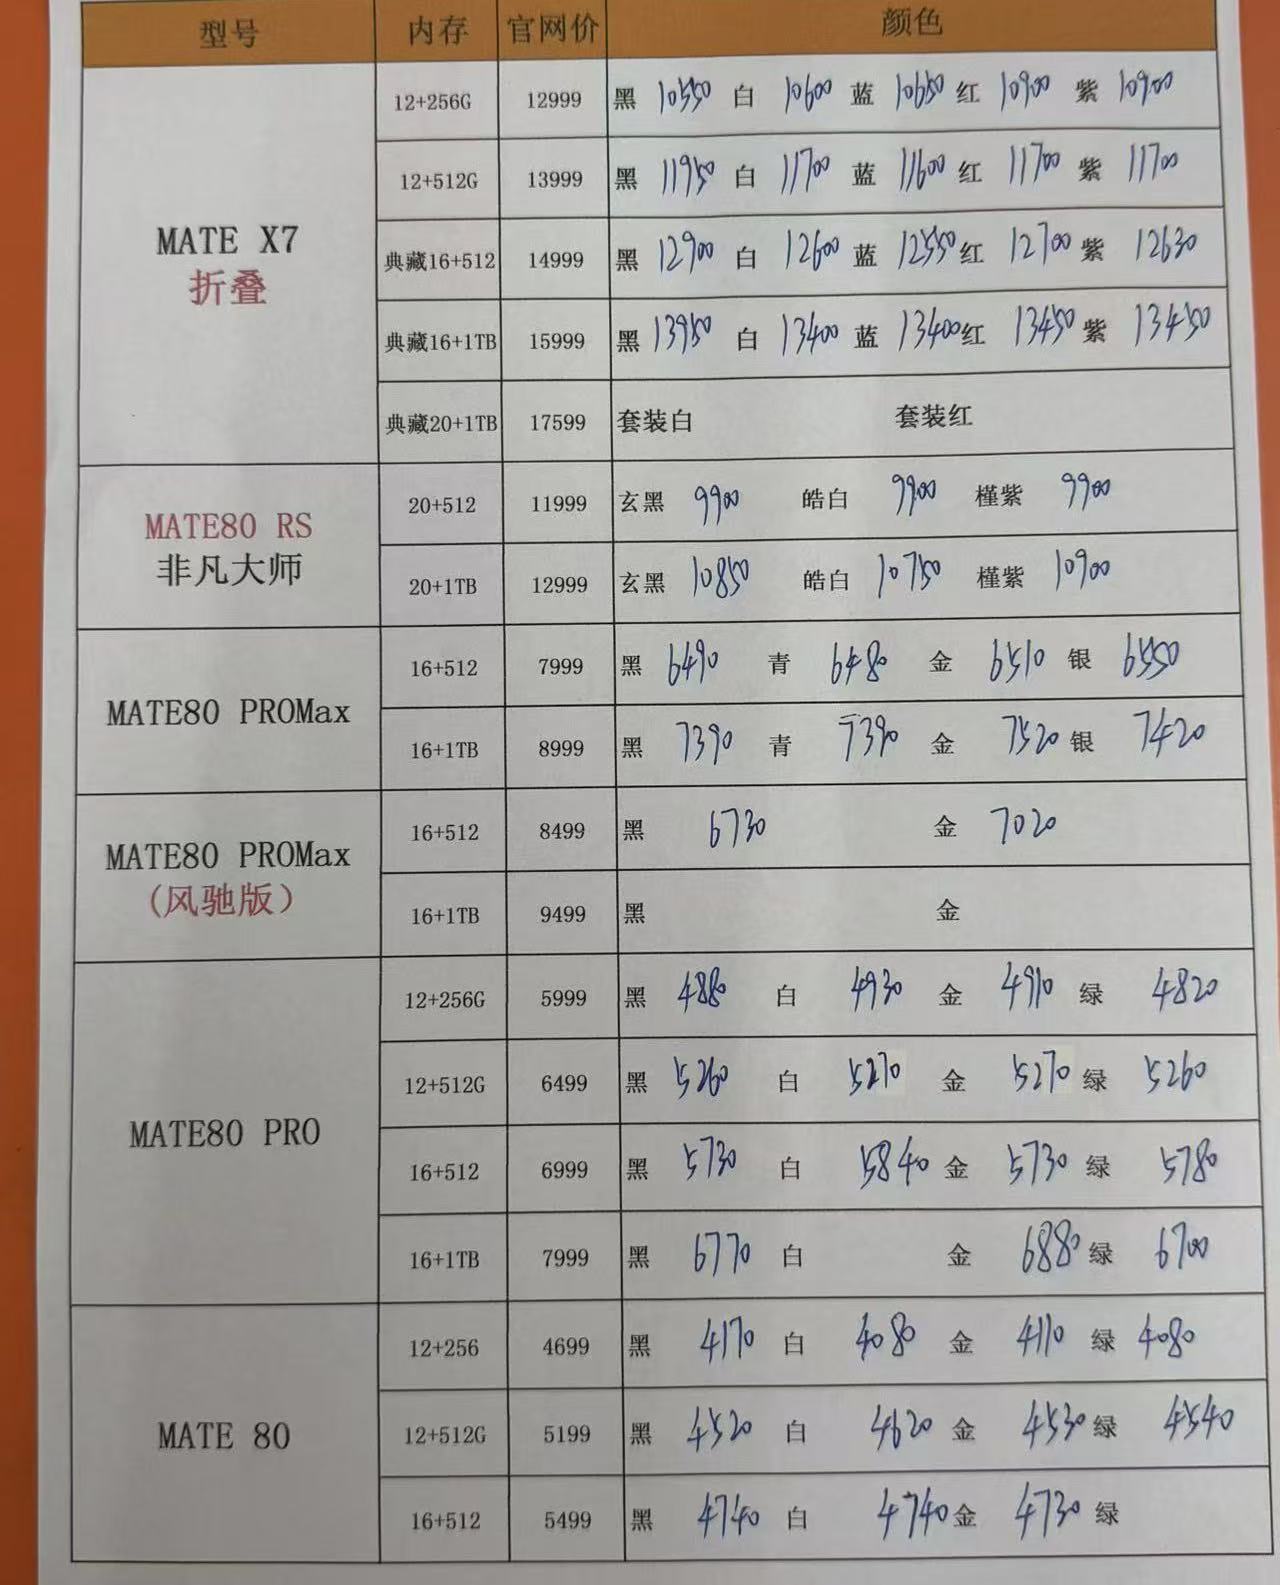 型号 内存 官网价 颜色
12+256G 12999 黑 10550 白 10600 蓝 10650 红 10900 紫 10900
12+512G 13999 黑 11950 白 11700 蓝 11600 红 11700 紫 11700
MATE X7
折叠
典藏16+512 14999 黑 12900 白 12600 蓝 12550 红 12700 紫 12630
典藏16+1TB 15999 黑 13950 白 13400 蓝 13400 红 13450 紫 13450
典藏20+1TB 17599 套装白 套装红
MATE80 RS
非凡大师
20+512 11999 玄黑 9900 皓白 9900 槿紫 9900
20+1TB 12999 玄黑 10850 皓白 10750 槿紫 10900
MATE80 PROMax
16+512 7999 黑 6490 青 6480 金 6510 银 6550
16+1TB 8999 黑 7390 青 7390 金 7520 银 7420
MATE80 PROMax
(风驰版)
16+512 8499 黑 6730 金 7020
16+1TB 9499 黑 金
MATE80 PRO
12+256G 5999 黑 4880 白 4930 金 4910 绿 4820
12+512G 6499 黑 5260 白 5270 金 5270 绿 5260
16+512 6999 黑 5730 白 5840 金 5730 绿 5780
16+1TB 7999 黑 6770 白 金 6880 绿 6700
MATE 80
12+256 4699 黑 4170 白 4080 金 4110 绿 4080
12+512G 5199 黑 4520 白 4620 金 4530 绿 4540
16+512 5499 黑 4740 白 4740 金 4730 绿